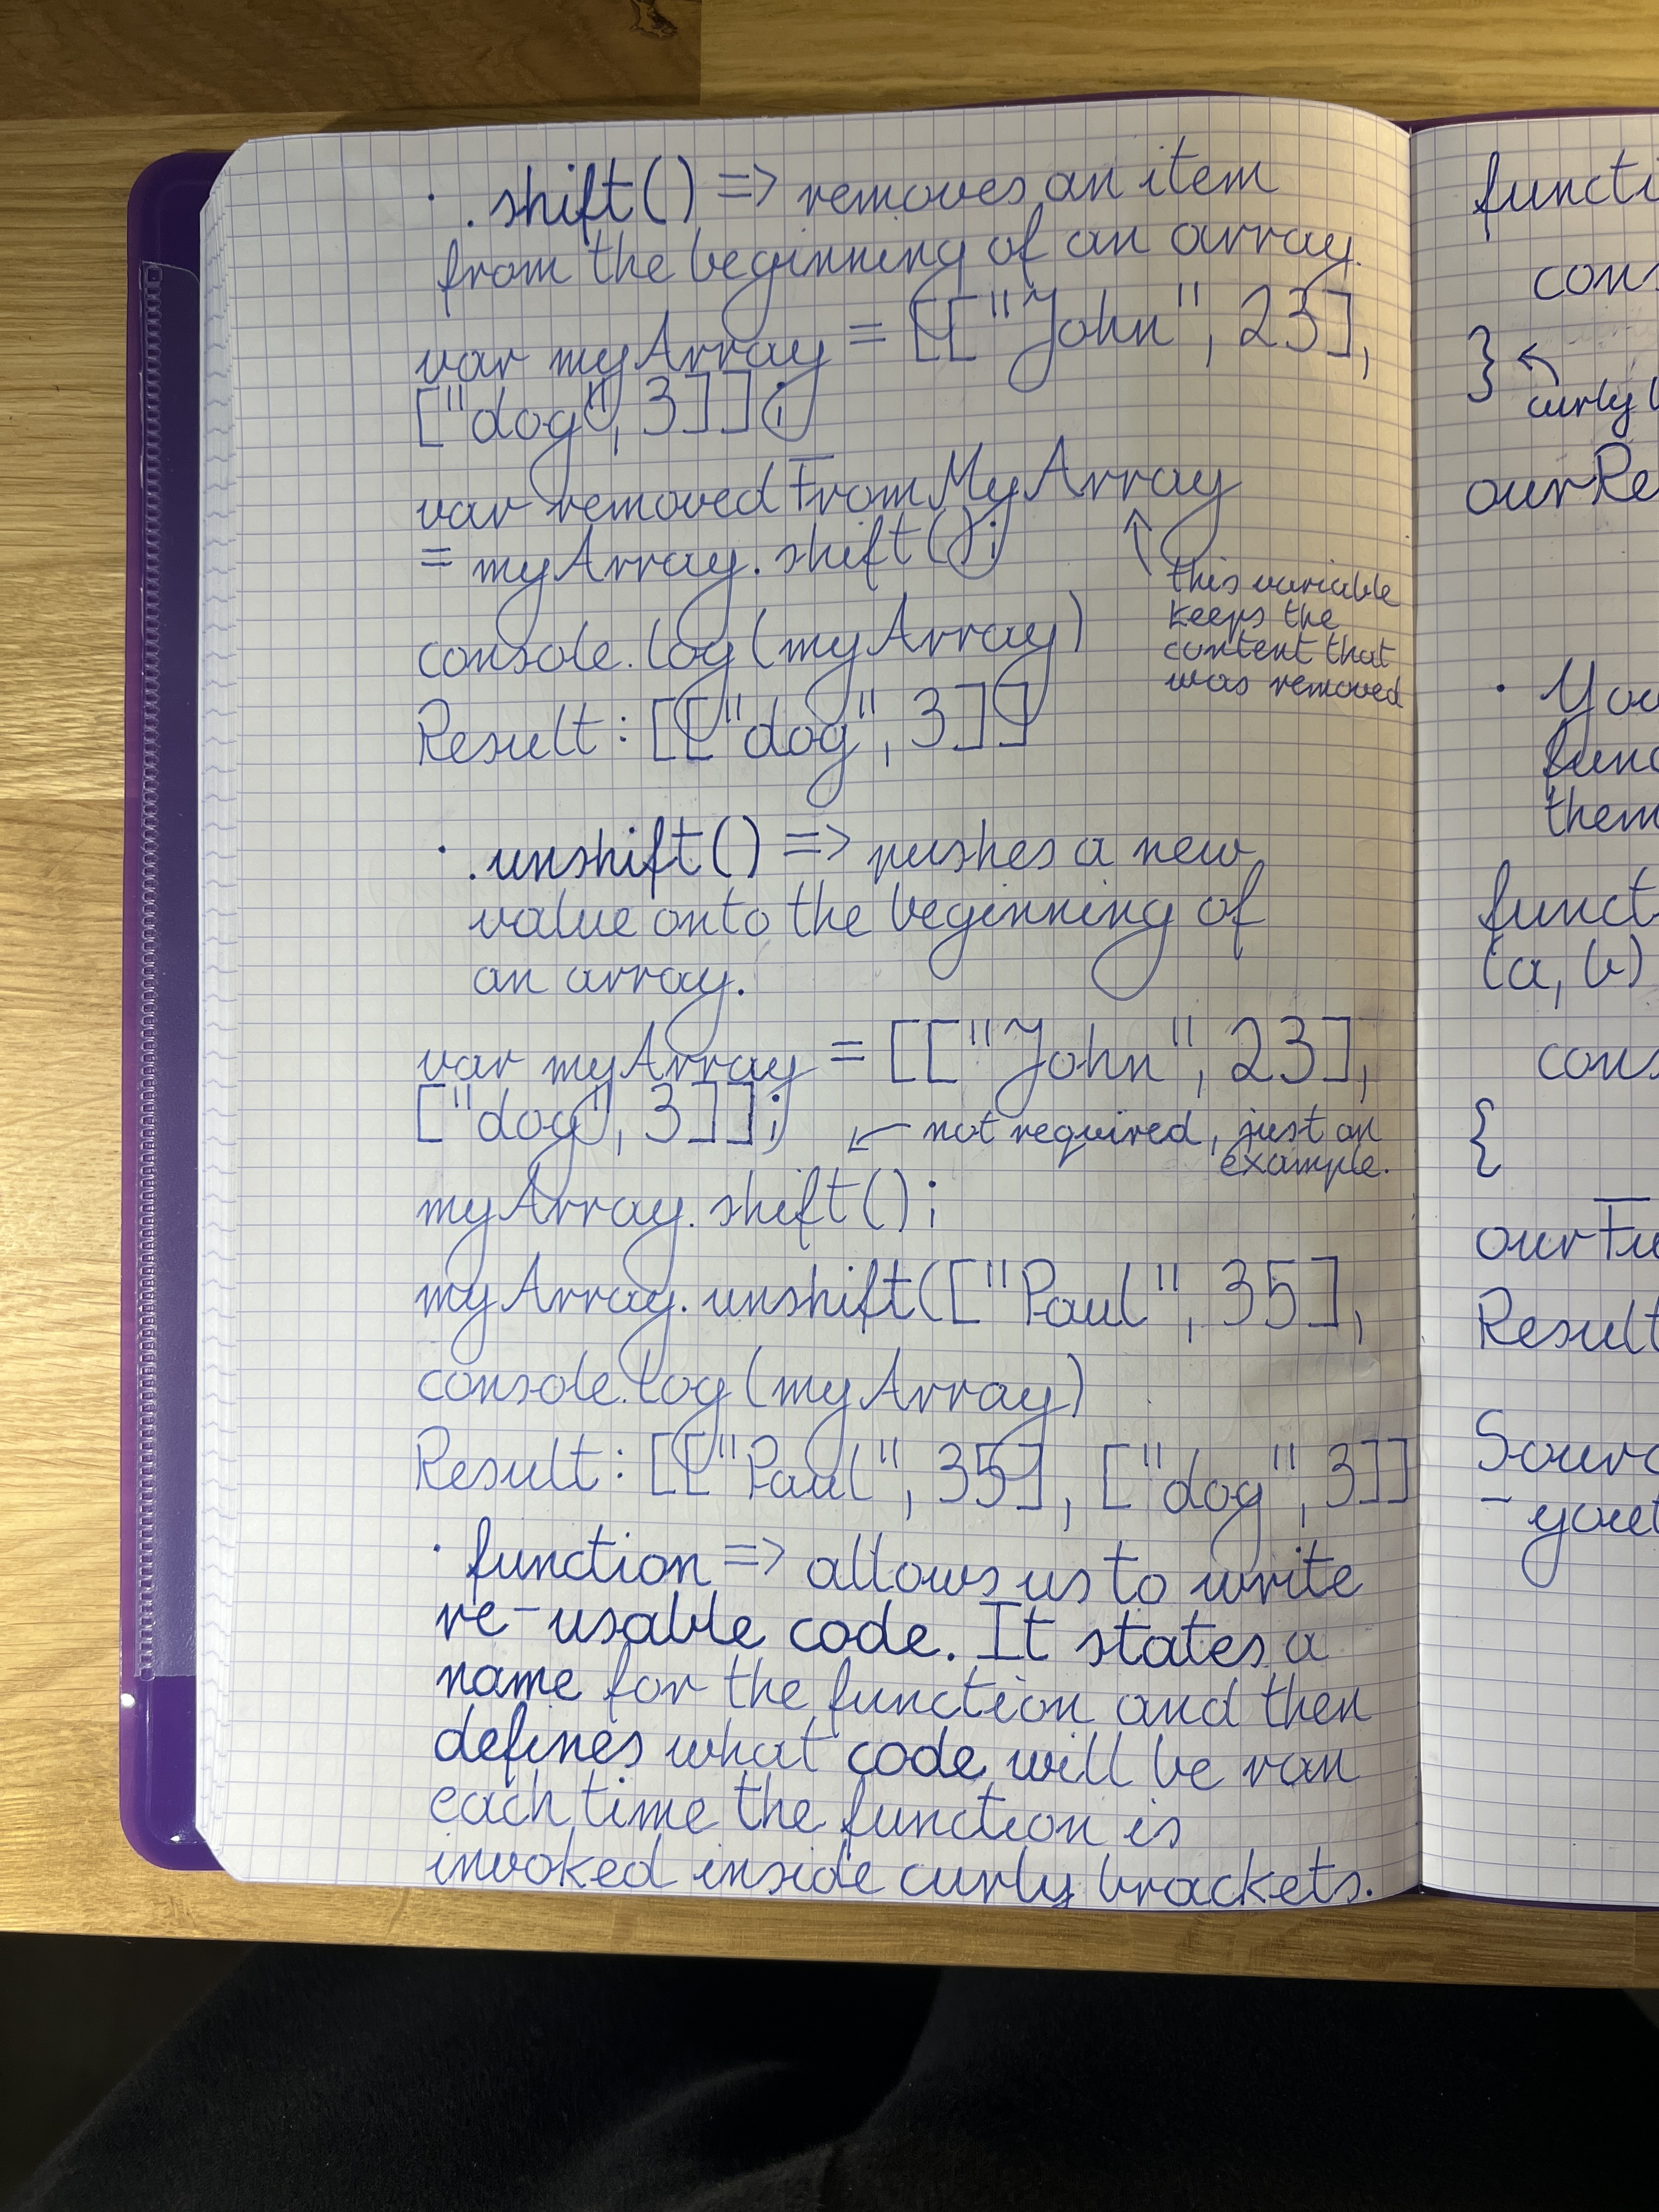 · .shift() => removes an item
from the beginning of an array.
var myArray = [["John", 23],
["dog", 3]];
var removedFromMyArray
= myArray.shift();
this variable
keeps the
content that
was removed
console.log(myArray)
Result: [["dog", 3]]
· .unshift() => pushes a new
value onto the beginning of
an array.
var myArray = [["John", 23],
["dog", 3]];
not required, just an
example.
myArray.shift();
myArray.unshift(["Paul", 35],
console.log(myArray)
Result: [["Paul", 35], ["dog", 3]]
· function => allows us to write
re-usable code. It states a
name for the function and then
defines what code will be ran
each time the function is
invoked inside curly brackets.
functi
cons
}
curly b
ourRe
· You
func
them
funct
(a, b)
cons
{
ourFu
Result
Sourc
- yout